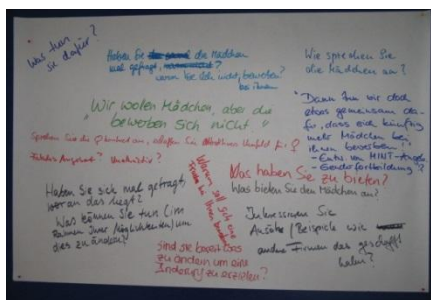 Was tun
sie dafür?
Haben Sie die Mädchen
mal gefragt,
warum sie sich nicht bewerben
bei ihnen
Wie sprechen Sie
die Mädchen an?
"Wir wollen Mädchen, aber die
bewerben sich nicht."
"Dann tun wir doch
etwas gemeinsam da-
für, dass sich künftig
mehr Mädchen bei
ihnen bewerben!
- Genderfortbildung"
Sprechen Sie die an, schaffen Sie Umfeld für ♀
Fehlt Angebot? Unattraktiv?
Warum soll sich eine
Frau bei Ihnen
Was haben Sie zu bieten?
Was bieten Sie den Mädchen an?
Haben Sie sich mal gefragt
woran das liegt?
Was können Sie tun (im
Rahmen Ihrer Möglichkeiten) um
dies zu ändern?
Sind Sie bereit etwas
zu ändern um eine
Änderung zu erzielen?
Interessieren Sie
Ansätze/Beispiele wie
andere Firmen das geschafft
haben?